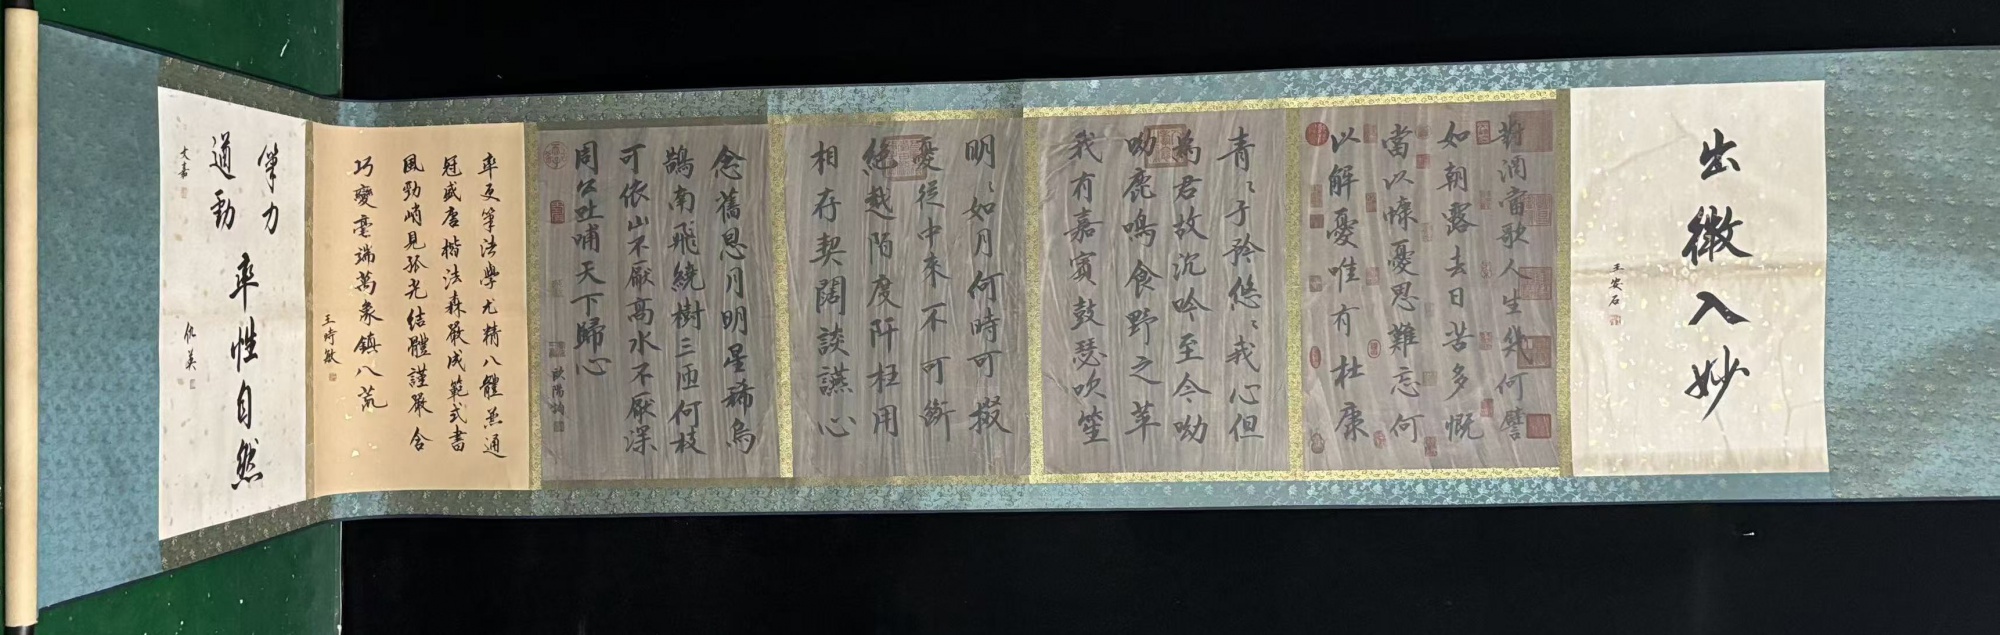 出微入妙
王安石
對酒當歌人生幾何譬
如朝露去日苦多慨
當以慷憂思難忘何
以解憂唯有杜康
青〻子衿悠〻我心但
為君故沉吟至今呦
呦鹿鳴食野之苹
我有嘉賓鼓瑟吹笙
明〻如月何時可掇
憂從中來不可斷
絕越陌度阡枉用
相存契闊談讌心
念舊恩月明星稀烏
鵲南飛繞樹三匝何枝
可依山不厭高水不厭深
周公吐哺天下歸心
歐陽詢
率更筆法學尤精八體兼通
冠盛唐楷法森嚴成範式書
風勁峭見孤光結體謹嚴含
巧變毫端萬象鎮八荒
王時敏
筆力
遒勁
率性自然
文嘉
仇英